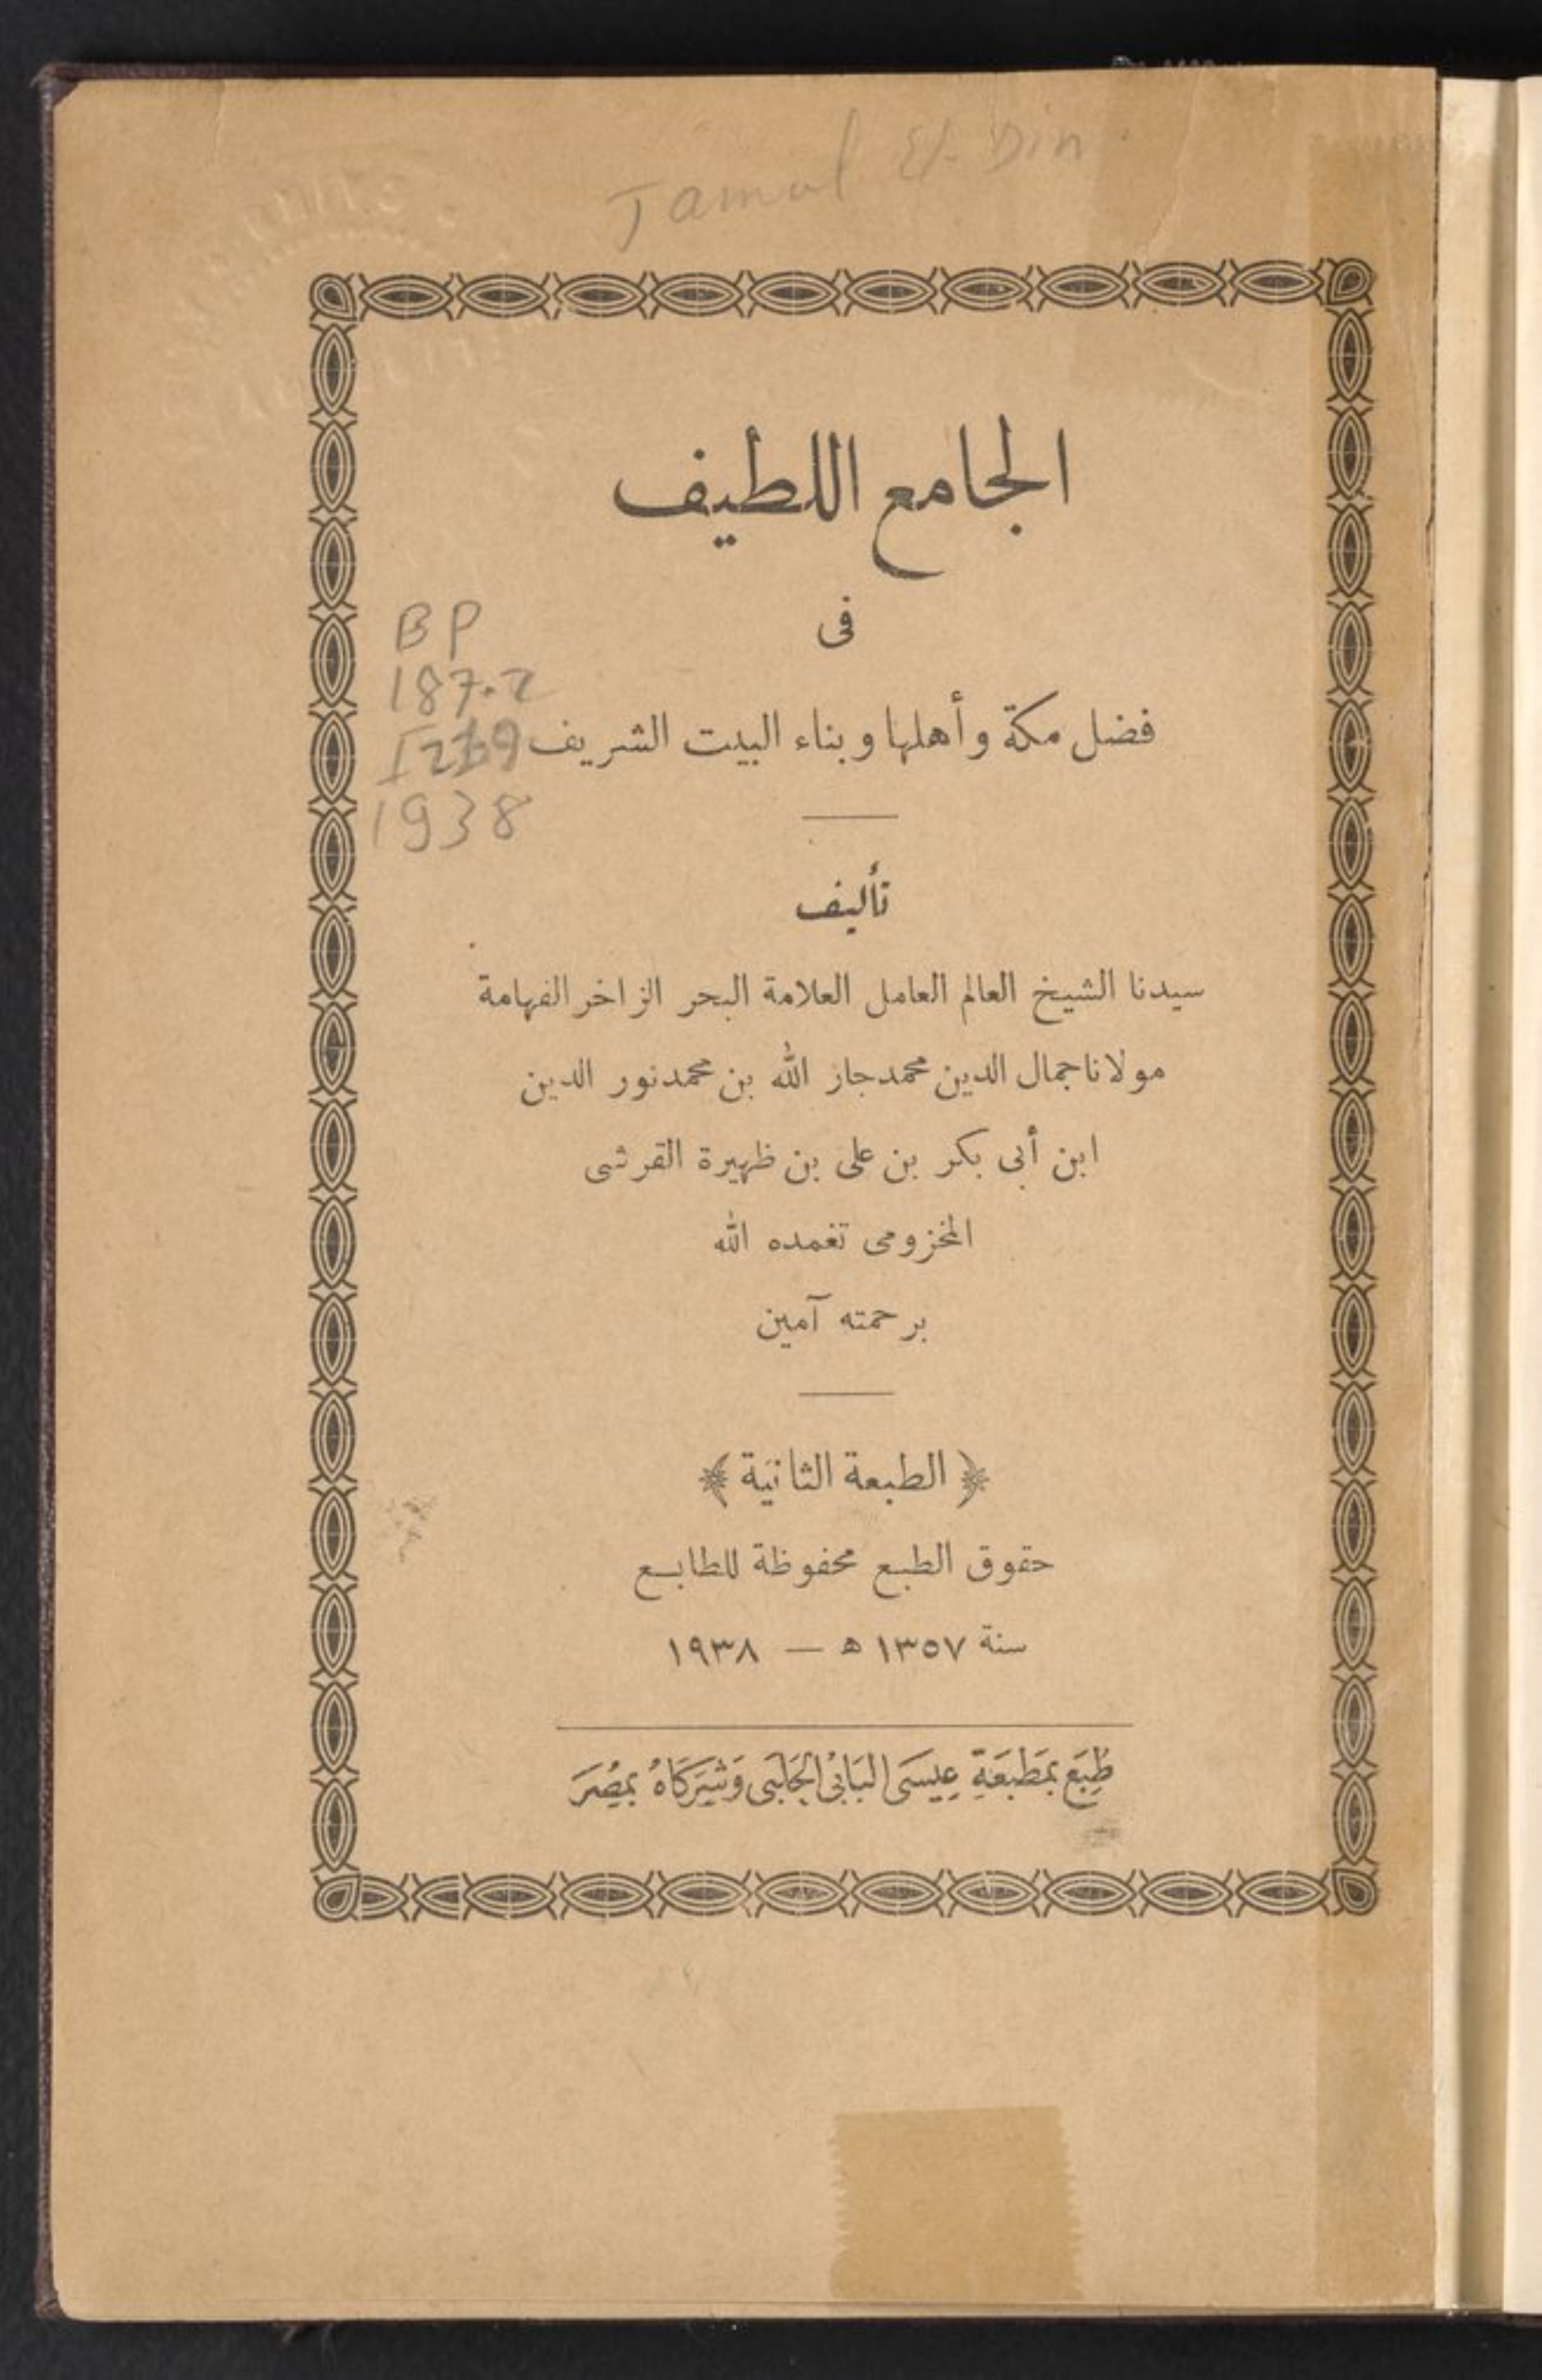 Jamal El-Din
الجامع اللطيف
فى
فضل مكة وأهلها وبناء البيت الشريف
BP
187.2
1938
تأليف
سيدنا الشيخ العالم العامل العلامة البحر الزاخر الفهامة
مولانا جمال الدين محمد جاز الله بن محمد نور الدين
ابن أبى بكر بن على بن ظهيرة القرشى
المخزومى تغمده الله
برحمته آمين
﴿ الطبعة الثانية ﴾
حقوق الطبع محفوظة للطابع
سنة ١٣٥٧ ه — ١٩٣٨
طُبِعَ بمَطبَعَةِ عِيسَى البَابْى الحَلَبى وَشِرَكَاهُ بمِصْرَ